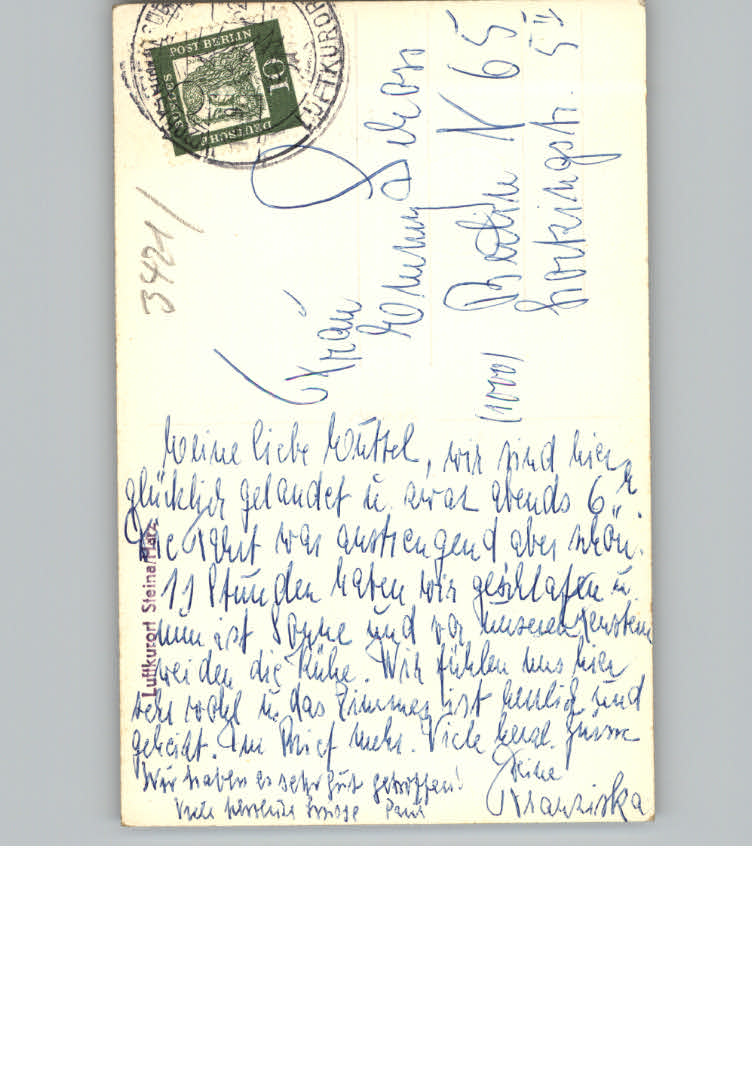 DEUTSCHE BUNDESPOST BERLIN
10
LUFTKURORT
3421/
Frau
Berlin N 65
Lortzingstr. 5 II
(1000)
Luftkurort Steina/Harz
Meine liebe Muttel, wir sind hier
glücklich gelandet u. zwar abends 6 h.
Die Fahrt war anstrengend aber schön.
11 Stunden haben wir geschlafen u.
nun ist Sonne und vor unseren Fenstern
weiden die Kühe. Wir fühlen uns hier
sehr wohl u. das Zimmer ist herrlich und
geheizt. Im Brief mehr. Viele herzl. Grüsse
Deine
Franziska
Wir haben es sehr gut getroffen!
Viele herzliche Grüsse Paul